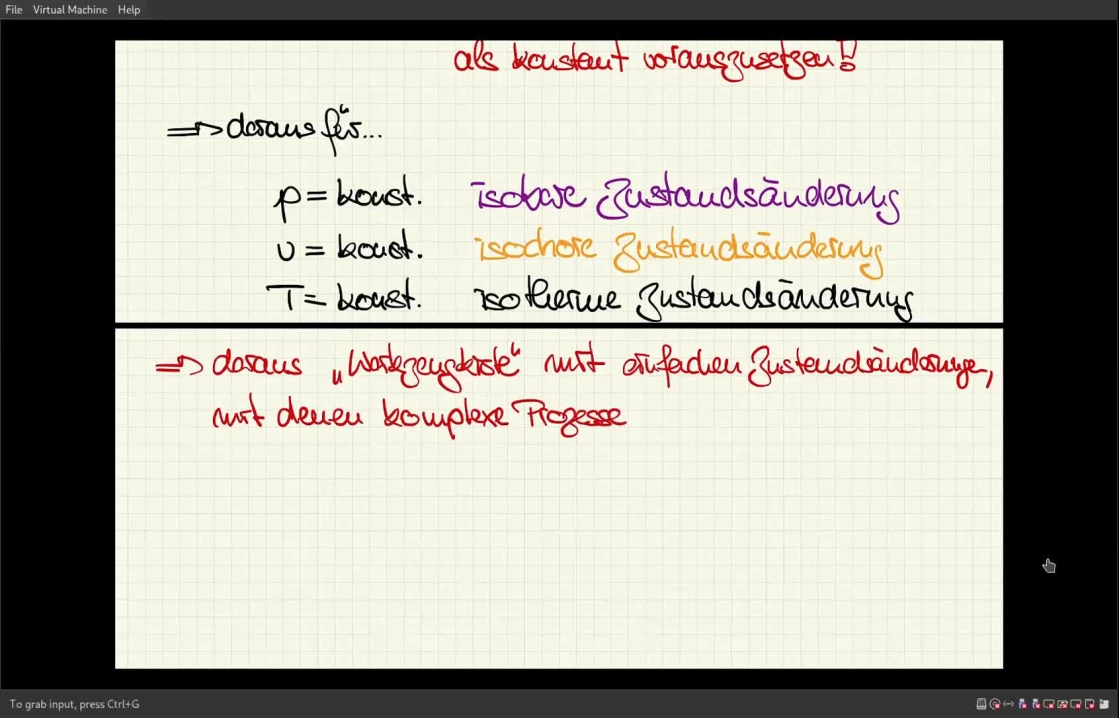 File Virtual Machine Help
als konstant vorauszusetzen!
⇒ daraus für...
p = konst. isobare Zustandsänderung
υ = konst. isochore Zustandsänderung
T = konst. isotherme Zustandsänderung
⇒ daraus „Werkzeugkiste“ mit einfachen Zustandsänderungen,
mit denen komplexe Prozesse
To grab input, press Ctrl+G